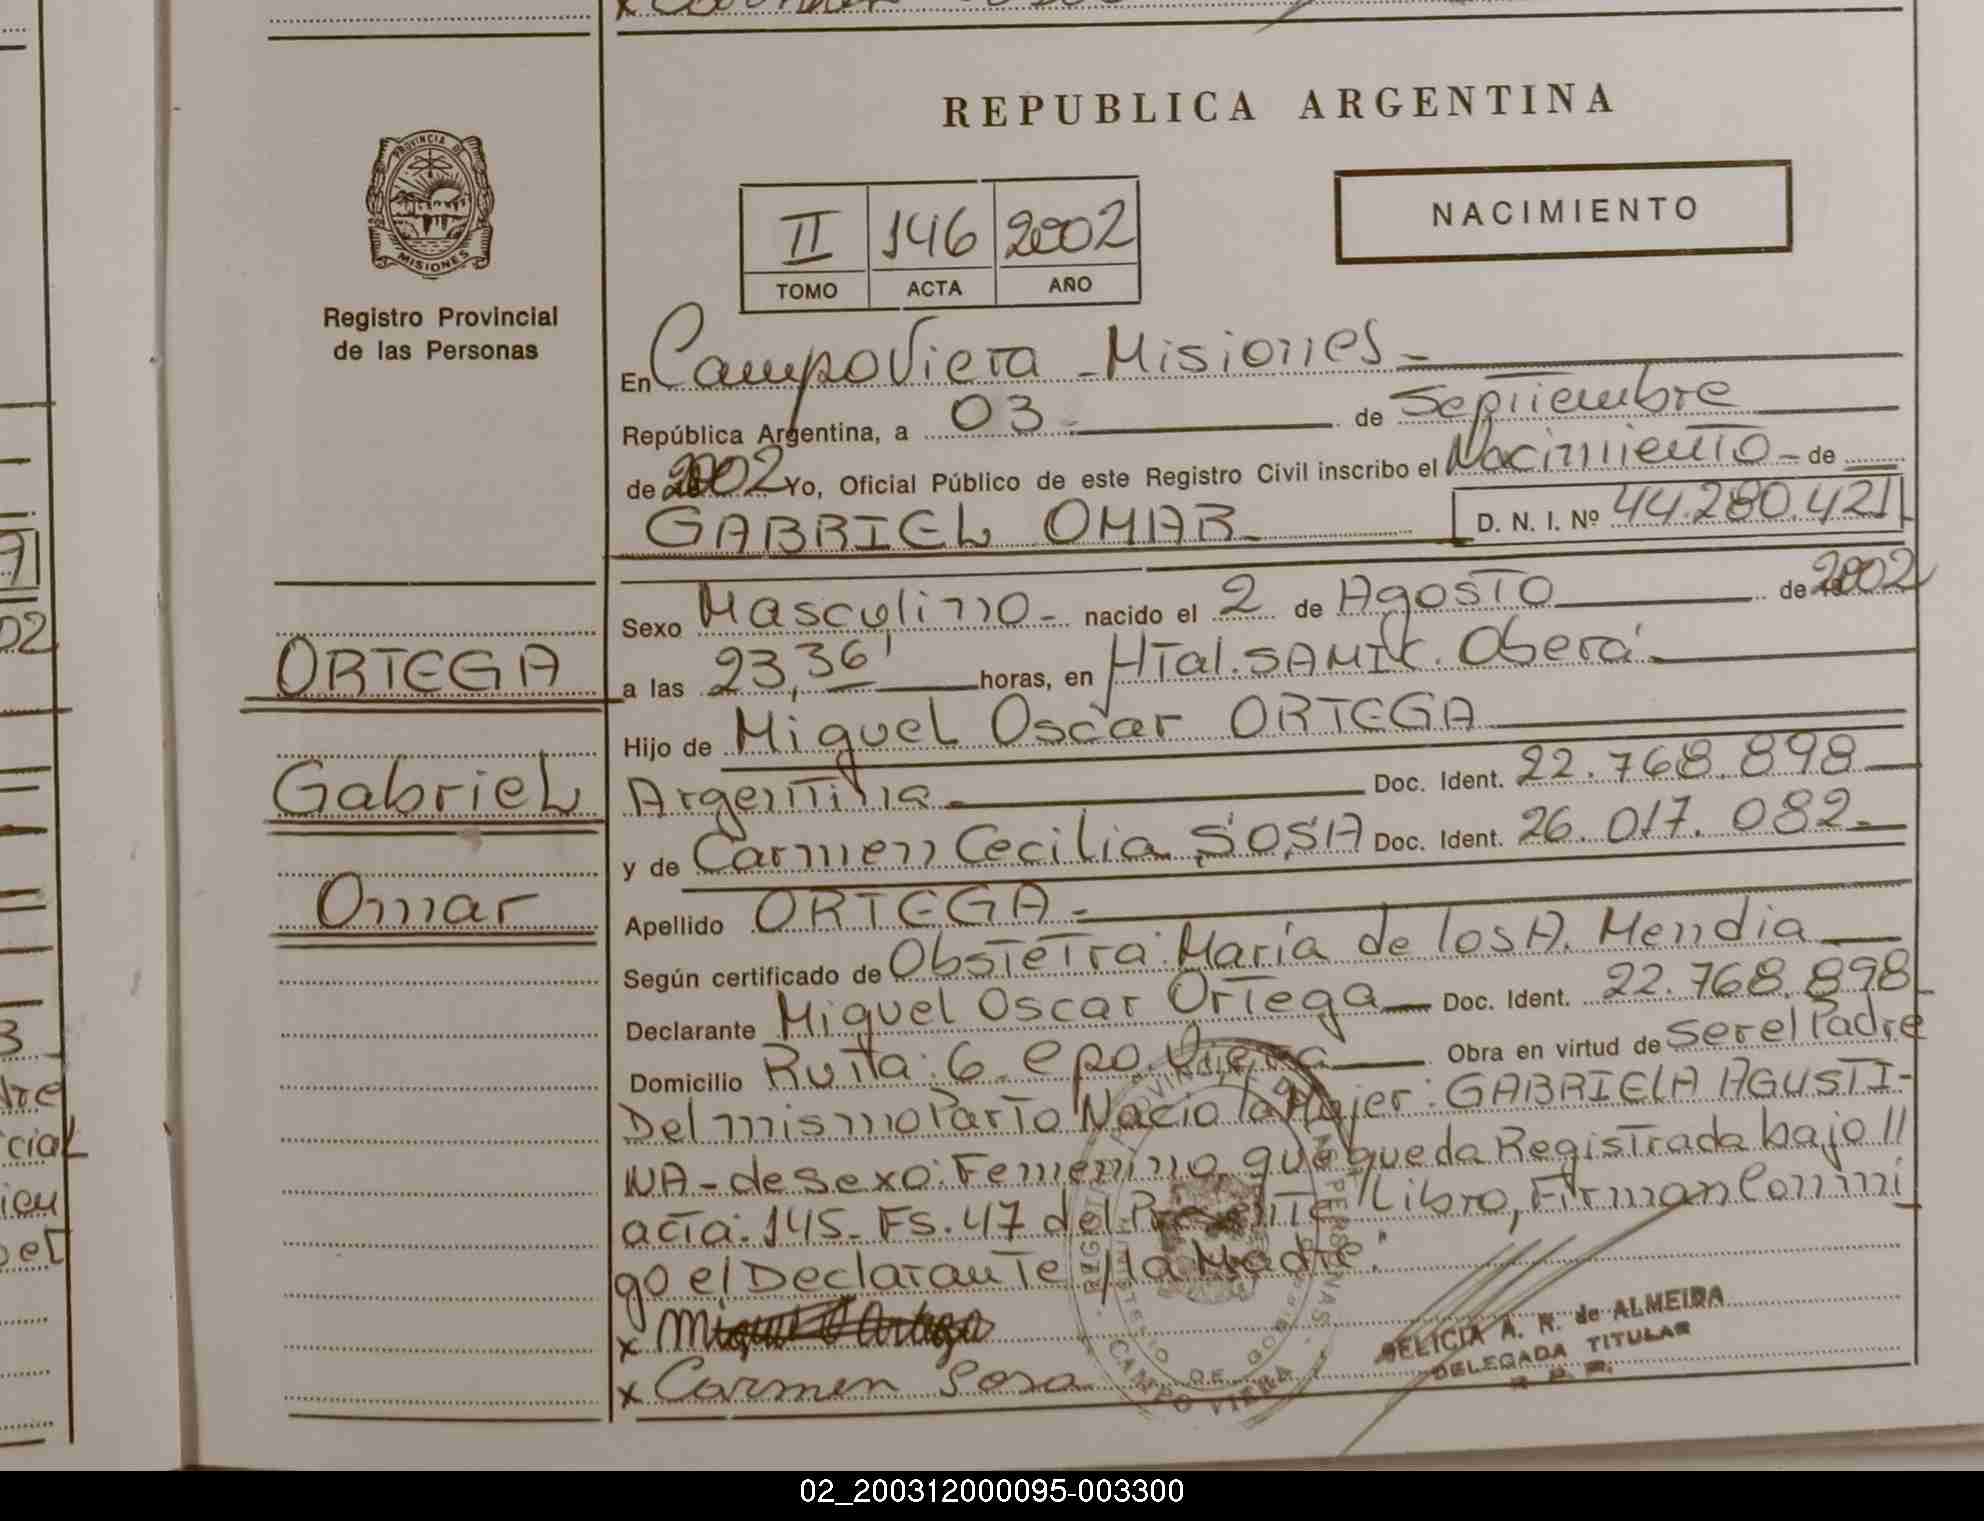 REPUBLICA ARGENTINA
PROVINCIA DE
MISIONES
Registro Provincial
de las Personas
II 146 2002
TOMO ACTA AÑO
NACIMIENTO
En Campo Viera - Misiones -
República Argentina, a 03 - de Septiembre
de 2002 Yo, Oficial Público de este Registro Civil inscribo el Nacimiento - de
GABRIEL OMAR - D. N. I. Nº 44.280.421
Sexo Masculino - nacido el 2 de Agosto de 2002
a las 23,36' horas, en HTal. SAMIC. Oberá -
Hijo de Miguel Oscar ORTEGA
Argentina - Doc. Ident. 22.768.898
y de Carmen Cecilia SOSA Doc. Ident. 26.017.082 -
Apellido ORTEGA -
Según certificado de Obstetra: María de los A. Mendia
Declarante Miguel Oscar Ortega Doc. Ident. 22.768.898
Domicilio Ruta: 6 Cpo. Viera Obra en virtud de ser el Padre
Del mismo Parto Nacio la Mujer: GABRIELA AGUSTI-
NA - de sexo: Femenino, que queda Registrada bajo //
acta: 145 - Fs. 47 del Presente Libro, Firman Conmi
go el Declarante y la Madre".
x Miguel O Ortega
x Carmen Sosa
ORTEGA
Gabriel
Omar
CAMPO VIERA
A. R. de ALMEIDA
DELEGADA TITULAR
02_200312000095-003300